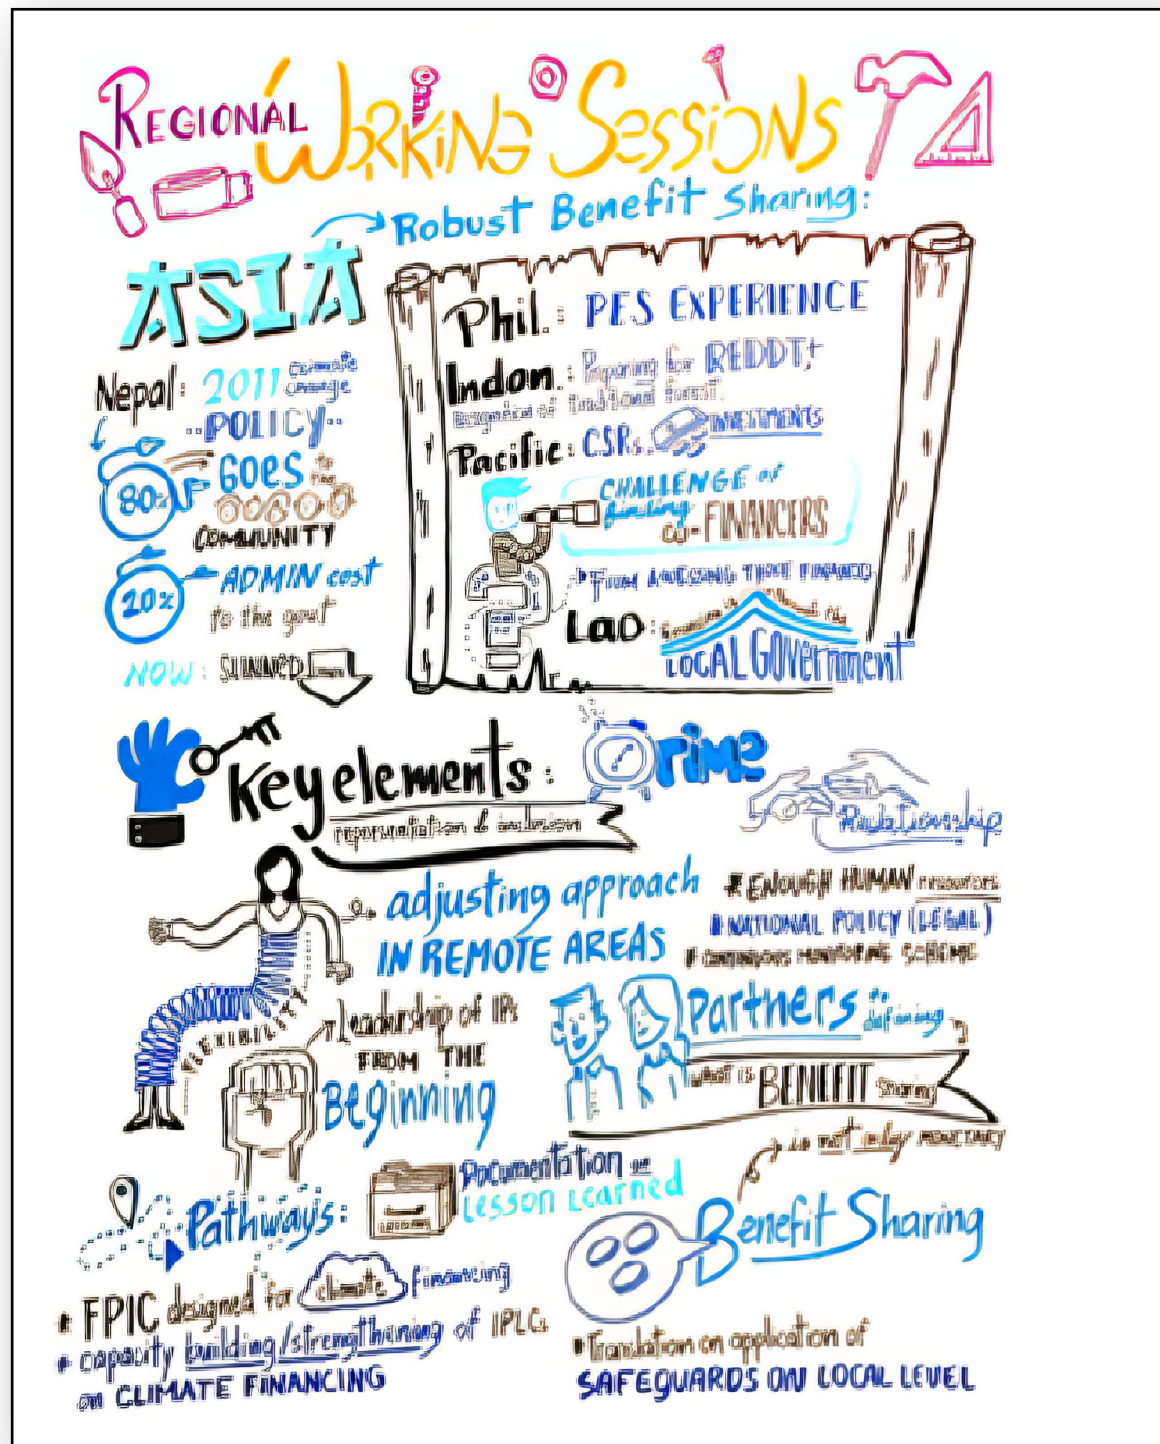 REGIONAL WORKING SESSIONS
Robust Benefit Sharing:
ASIA
Nepal: 2011 climate change
POLICY
80% GOES to the
COMMUNITY
20% ADMIN cost
to the govt
NOW:
Phil.: PES EXPERIENCE
Indon.: Preparing for REDD+
Pacific: CSR INVESTMENTS
CHALLENGE of
finding
co-FINANCERS
Lao:
LOCAL GOVERNMENT
Key elements:
representation & inclusion
Time
Relationship
adjusting approach
IN REMOTE AREAS
ENOUGH HUMAN resources
NATIONAL POLICY (LEGAL)
Leadership of IPs
FROM THE
Beginning
Partners in defining
what is BENEFIT sharing
is not only monetary
Documentation
Lesson Learned
Pathways:
Benefit Sharing
• FPIC designed for climate financing
• capacity building/strengthening of IPLCs
on CLIMATE FINANCING
• Translation on application of
SAFEGUARDS ON LOCAL LEVEL